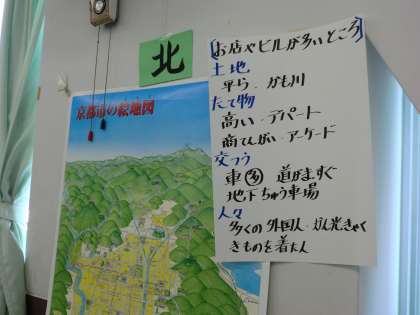 北
京都市の絵地図
(お店やビルが多いところ)
土地
平ら．かも川
たて物
高い．デパート
商てんがい．アーケード
交つう
車多 道がまっすぐ
地下ちゅう車場
人々
多くの外国人．かん光きゃく
きものを着た人